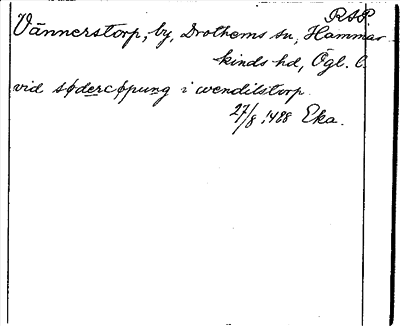 RAP.
Vännerstorp, by, Drothems sn, Hammar-
kinds hd, Ögl. L.
vid sødercøpung i wendilstorp.
27/8 1488 Eka.